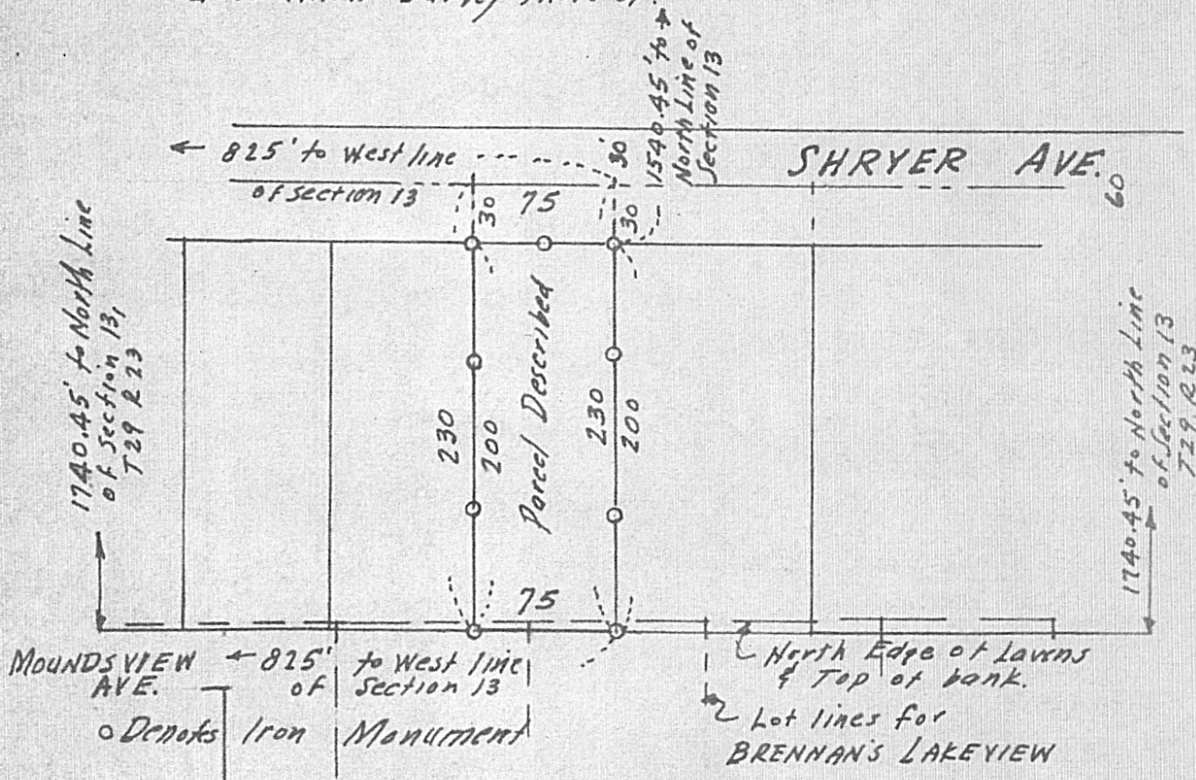 1540.45' to
North Line of
Section 13
← 825' to West line
of section 13
30'
SHRYER AVE.
60
30
75
30
1740.45' to North Line
of Section 13,
T29 R23
230
200
Parcel Described
230
200
1740.45' to North Line
of Section 13
T29 R23
75
MOUNDSVIEW
AVE.
← 825' to West line
of Section 13
North Edge of Lawns
& Top of bank.
o Denotes Iron Monument
Lot lines for
BRENNAN'S LAKEVIEW